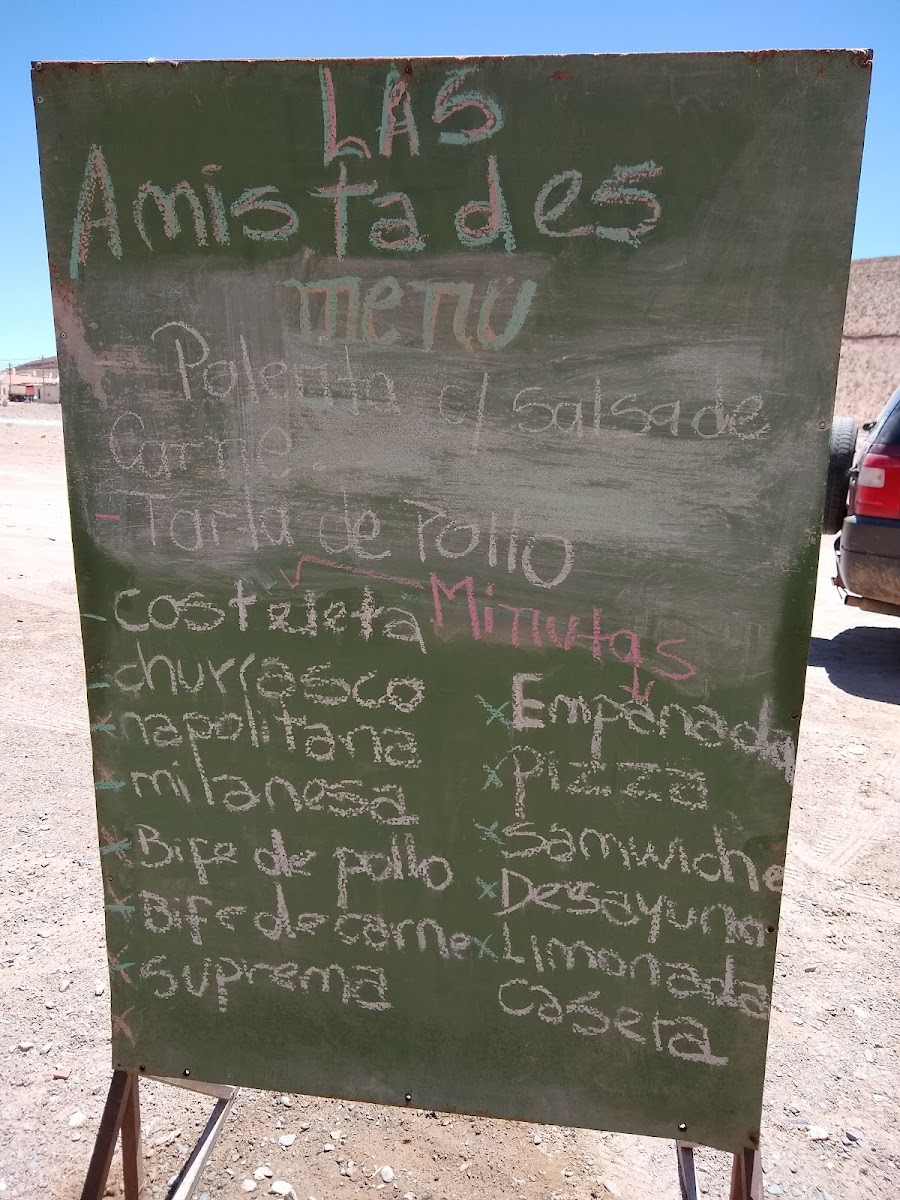 LAS
Amistades
menú
Polenta c/ salsa de
Carne.
- Tarta de Pollo
Minutas
- costeleta
- churrasco
- napolitana
- milanesa
- Bife de pollo
- Bife de carne
x suprema
x
x Empanada
x pizza
x Samwiche
x Desayuno
x Limonada
casera